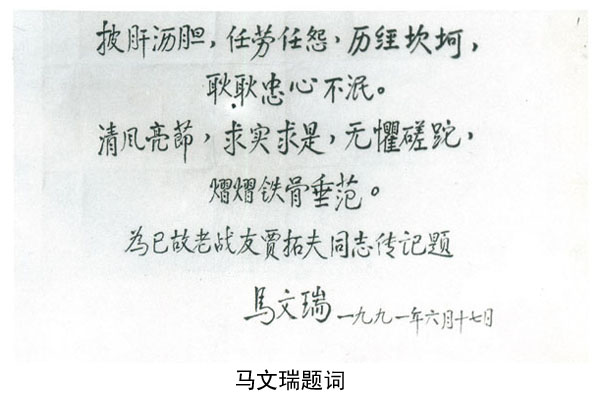 披肝沥胆，任劳任怨，历经坎坷，
耿耿忠心不泯。
清风亮節，求实求是，无懼磋跎，
熠熠铁骨垂范。
為已故老战友贾拓夫同志传记题
马文瑞一九九一年六月十七日
马文瑞题词